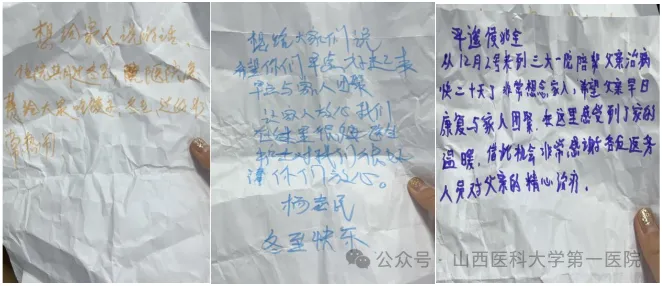 想给家人说的话
想给大家们说
希望你们早点好起来
早点与家人团聚
让家人放心我们
在这里很好医生
护士对我们很好
请你们放心。
杨宏民
冬至快乐
平遥侯兆全
从12月2号来到三大一院陪帮父亲治病
快二十天了非常想念家人,希望父亲早日
康复与家人团聚.在这里感觉到了家的
温暖.借此机会非常感谢各位医务
人员对父亲的精心治疗.
公众号·山西医科大学第一医院